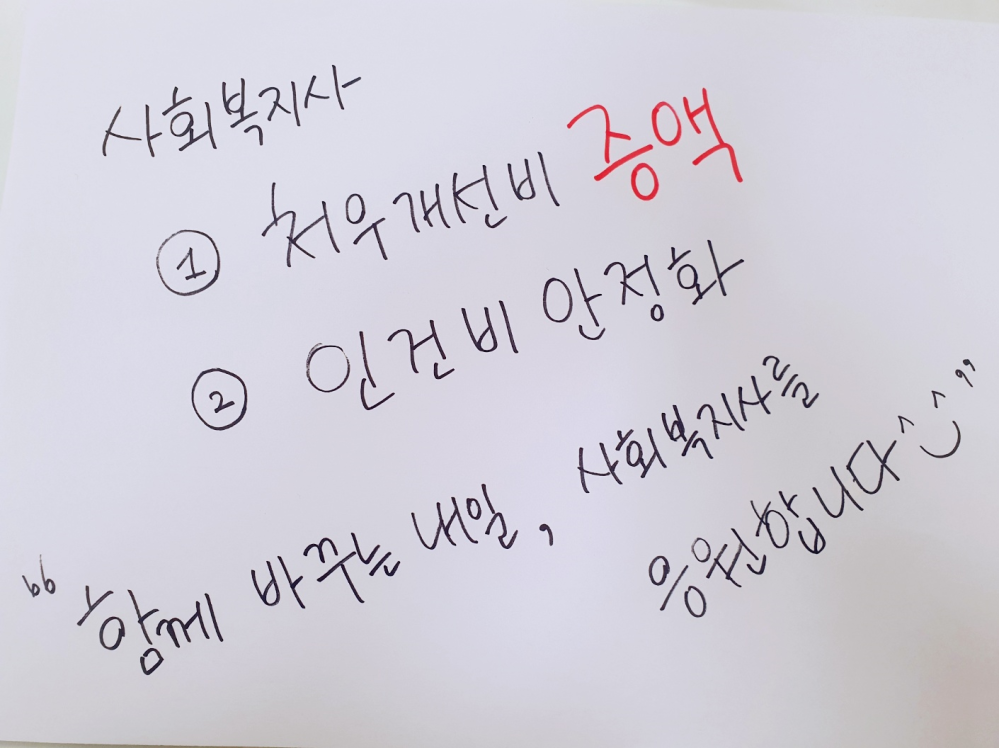 사회복지사
① 처우개선비 증액
② 인건비 안정화
"함께 바꾸는 내일, 사회복지사를
응원합니다^^"